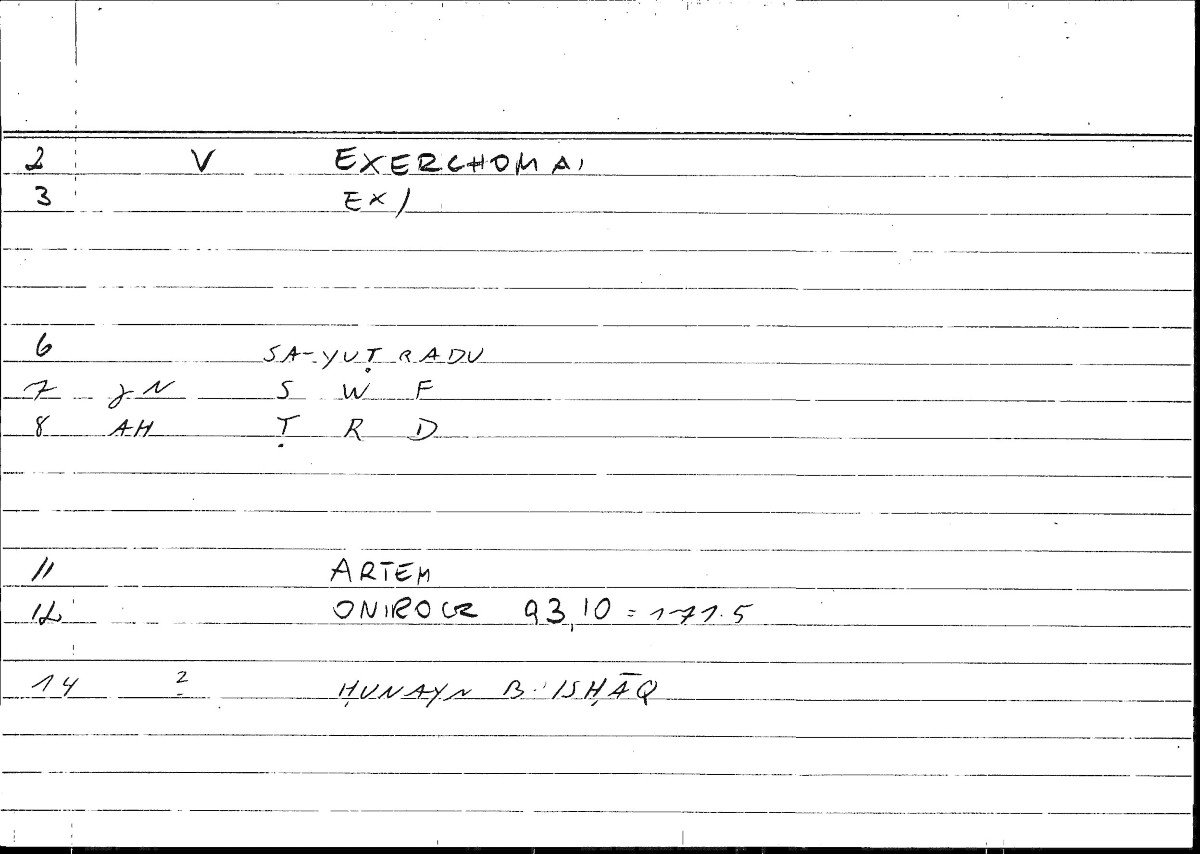 2 V EXERCHOMAI
3 EX/
6 SA-YUṬRADU
7 JN S W F
8 AH Ṭ R D
11 ARTEM
12 ONIROCR 93,10 = 171.5
14 2 ḤUNAYN B. ISḤĀQ